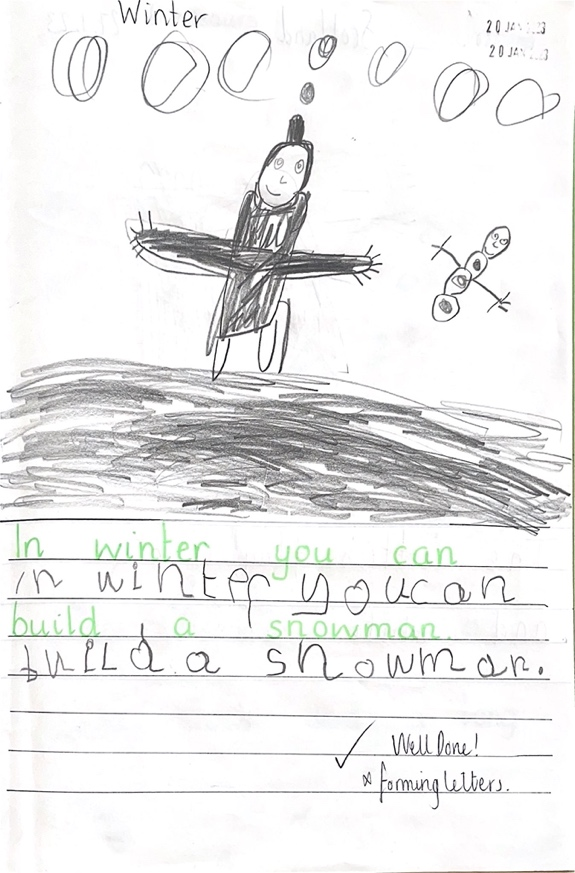 Winter
20 JAN
20 JAN
In winter you can
in winter youcan
build a snowman.
build a snowman.
✓ Well Done!
* forming letters.